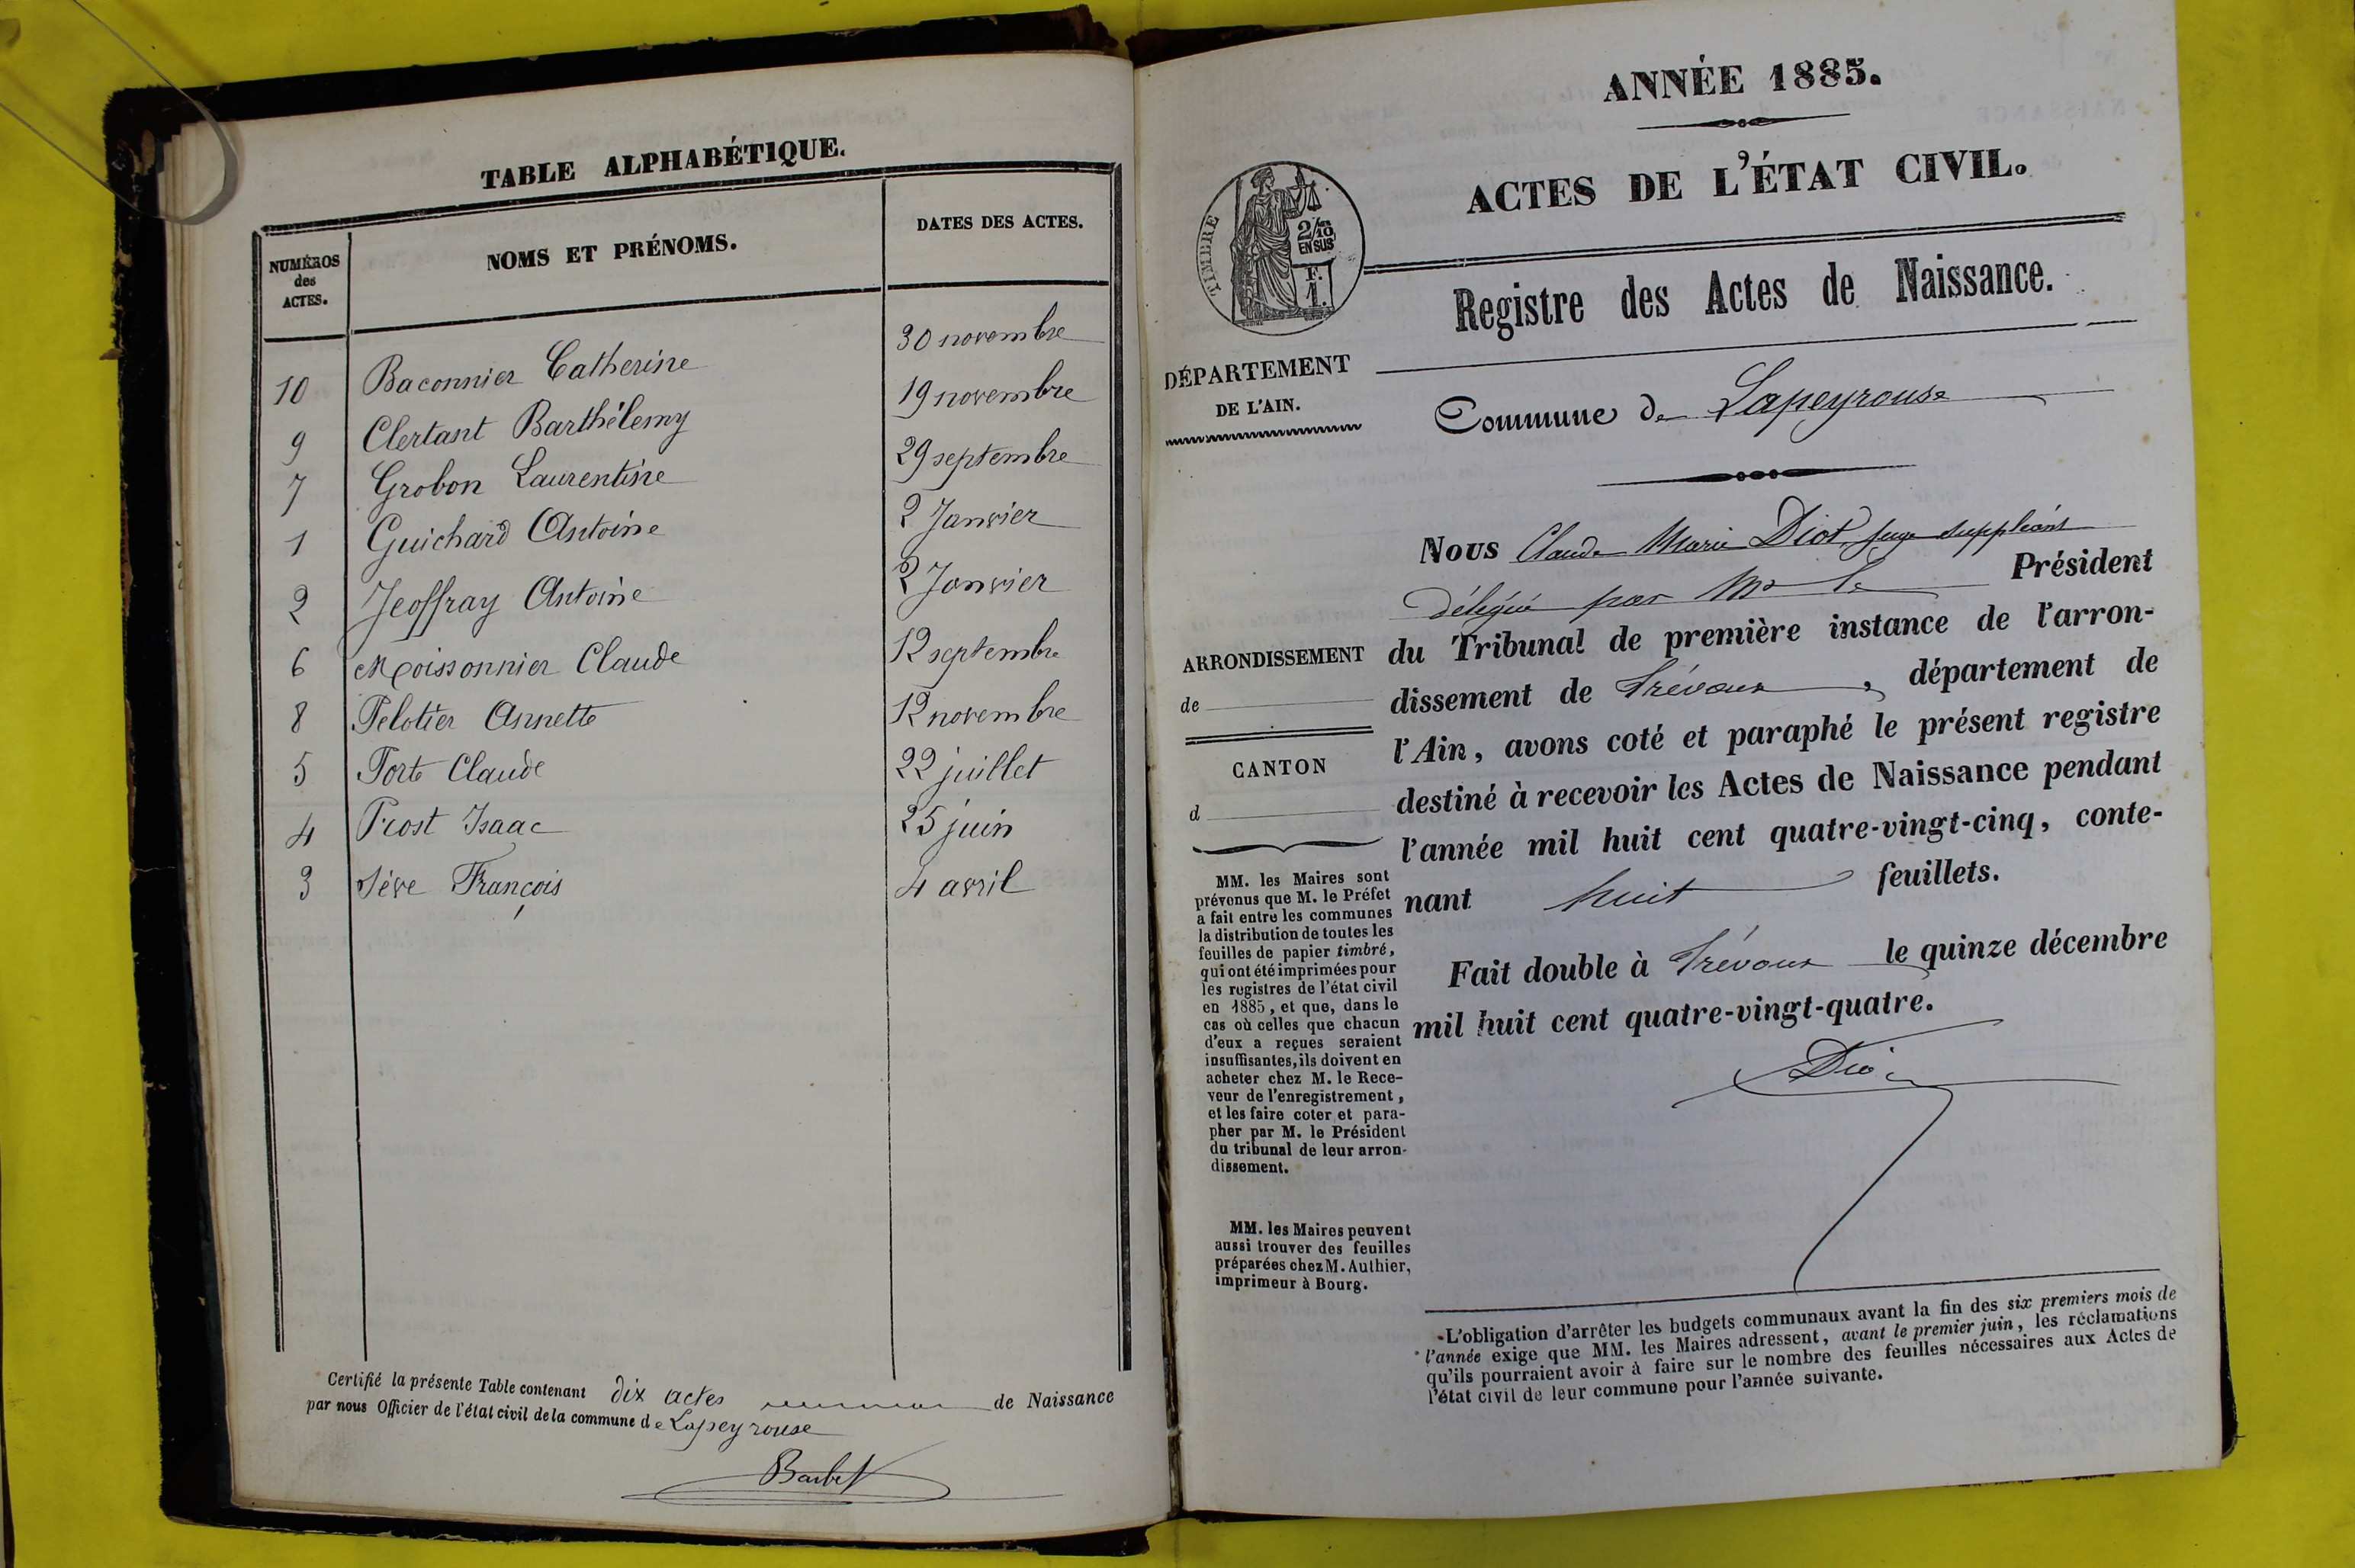 TABLE ALPHABÉTIQUE.
NUMÉROS des ACTES.
NOMS ET PRÉNOMS.
DATES DES ACTES.
10 Baconnier Catherine 30 novembre
9 Clertant Barthélemy 19 novembre
7 Grobon Laurentine 29 septembre
1 Guichard Antoine 2 Janvier
2 Jeoffray Antoine 2 Janvier
6 Moissonnier Claude 12 septembre
8 Pelotier Annette 12 novembre
5 Porte Claude 22 juillet
4 Prost Isaac 25 juin
3 Sève François 4 avril
Certifié la présente Table contenant dix actes de Naissance
par nous Officier de l'état civil de la commune de Lapeyrouse
Barbet
ANNÉE 1885.
ACTES DE L'ÉTAT CIVIL.
TIMBRE
2/10 EN SUS
F. 1.
Registre des Actes de Naissance.
DÉPARTEMENT
DE L'AIN.
Commune de Lapeyrouse
Nous Claude Marie Diot, juge suppléant
délégué par Mr le Président
du Tribunal de première instance de l'arron-
dissement de Trévoux, département de
l'Ain, avons coté et paraphé le présent registre
destiné à recevoir les Actes de Naissance pendant
l'année mil huit cent quatre-vingt-cinq, conte-
nant huit feuillets.
Fait double à Trévoux le quinze décembre
mil huit cent quatre-vingt-quatre.
Diot
ARRONDISSEMENT
de
CANTON
d
MM. les Maires sont
prévenus que M. le Préfet
a fait entre les communes
la distribution de toutes les
feuilles de papier timbré,
qui ont été imprimées pour
les registres de l'état civil
en 1885, et que, dans le
cas où celles que chacun
d'eux a reçues seraient
insuffisantes, ils doivent en
acheter chez M. le Rece-
veur de l'enregistrement,
et les faire coter et para-
pher par M. le Président
du tribunal de leur arron-
dissement.
MM. les Maires peuvent
aussi trouver des feuilles
préparées chez M. Authier,
imprimeur à Bourg.
L'obligation d'arrêter les budgets communaux avant la fin des six premiers mois de
l'année exige que MM. les Maires adressent, avant le premier juin, les réclamations
qu'ils pourraient avoir à faire sur le nombre des feuilles nécessaires aux Actes de
l'état civil de leur commune pour l'année suivante.